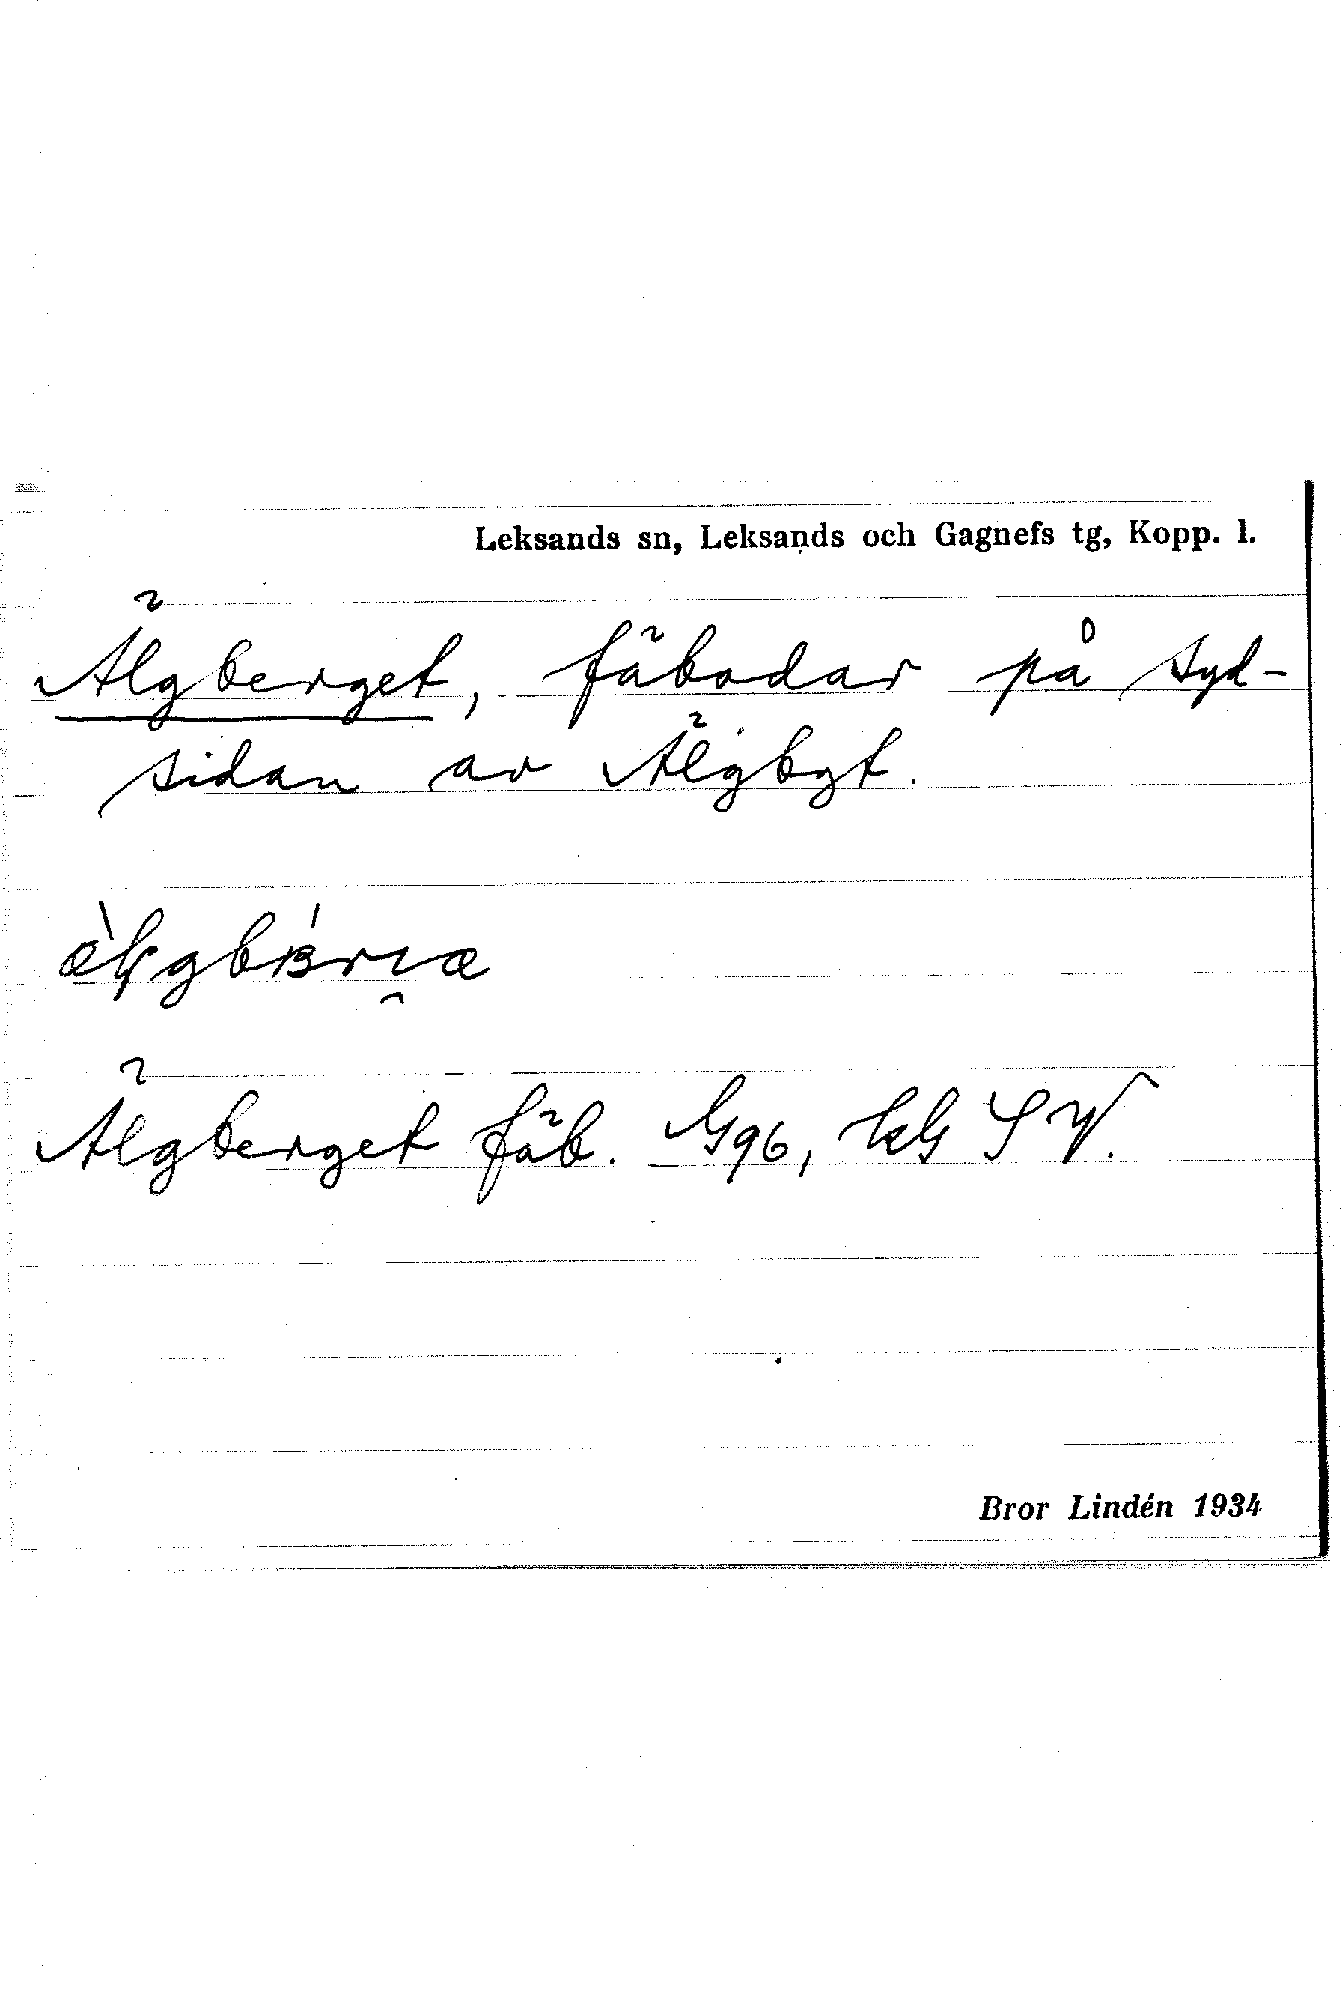 Leksands sn, Leksands och Gagnefs tg, Kopp. l.
Älgberget, fäbodar på syd-
sidan av Älgbgt.
Älgberget fäb. G96, kG SV.
Bror Lindén 1934